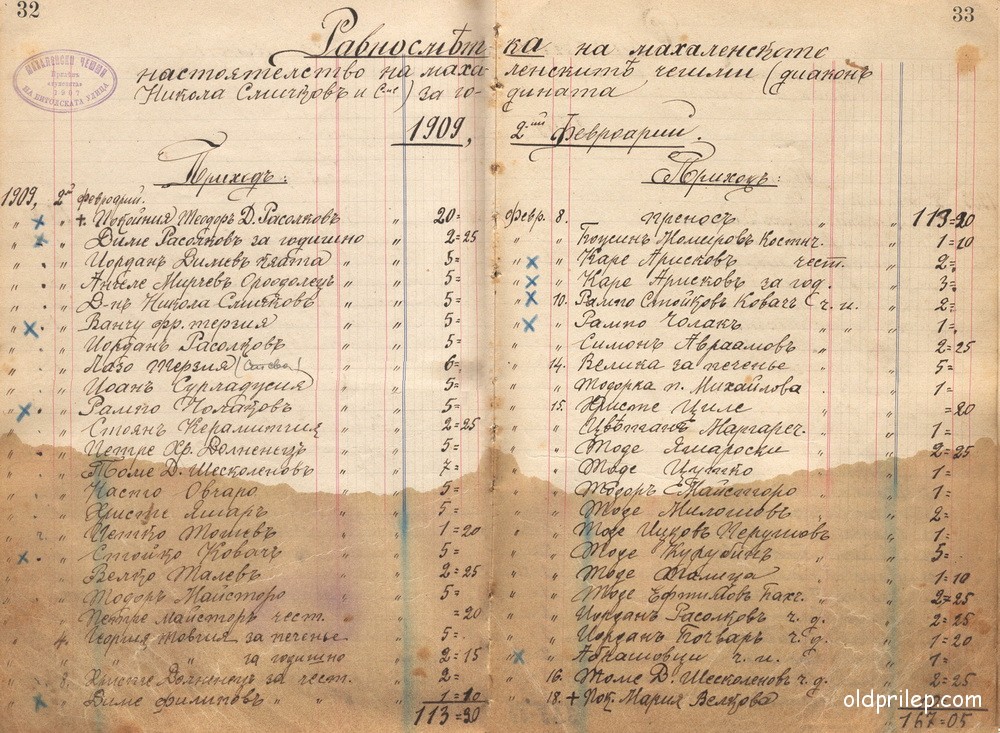 32
33
Равносмѣтка на махаленското
настоятелство на махаленскитѣ чешми (диаконъ
Никола Смичковъ и С-ие) за годината
1909, 2-ий Февроарии.
МАХАЛЕНСКИ ЧЕШМИ
1907
НА БИТОЛСКАТА УЛИЦА
Приходъ:
1909, 2ий февроарии.
+ Покойния Теодоръ Д. Расолковъ " 20=
" Диме Расолковъ за годишно " 2=25
" Иорданъ Димевъ " 5=
" Ангеле Мирчевъ " 5=
" Д-нъ Никола Смичковъ " 5=
" Ванчу фр. терзия " 5=
" Иорданъ Расолковъ " 5=
" Лазо Терзия " 6=
" Иоанъ " 5=
" Рампо Чолаковъ " 5=
" Стоянъ Керамитчия " 2=25
" Петре Хр. Долненецъ " 5=
" Томе Д. Шесколеновъ " 7=
" Насто Овчаро " 5=
" Христе Яшаръ " 5=
" Цетко Тошевъ " 1=20
" Стойко Ковачъ " 5=
" Велко Талевъ " 2=25
" Тодоръ Майсторо " 5=
" Петре майсторъ чест. =20
4. за печенье 5=
" " за годишно 2=15
8. Христе Долненецъ за чест. 2=
" Диме Филиповъ " " 1=10
113=30
Приходъ:
февр. 8. Преносъ " 113=30
" " 1=10
" Каре Арисковъ чест. 2=
" Каре Арисковъ за год. 3=
" 10. Рампо Стойковъ Ковачъ ч. и. 2=
" Рампо Чолакъ " " 1=
" Симонъ Авраамовъ 2=25
14. Велика за печенье 5=
" Тодорка п. Михайлова 1=
" 15. Христе Циле =20
" Цвѣтанъ 1=
" Тоде Ямароски 2=25
" Тоде Цутко 1=
" Тодоръ Майсторо 1=
" Тоде Милошовъ 2=
" Тоде 1=
" Тоде 5=
" Тоде 1=10
" Тоде Ефтимовъ 2=25
" Иорданъ Расолковъ ч. д. 2=25
" Иорданъ Бочваръ ч. д. 1=20
" Абрашовци ч. и. 1=
" 16. Томе Д. Шесколеновъ ч. д. 2=25
" 18. + Пок. Мария Велкова
167=05
oldprilep.com